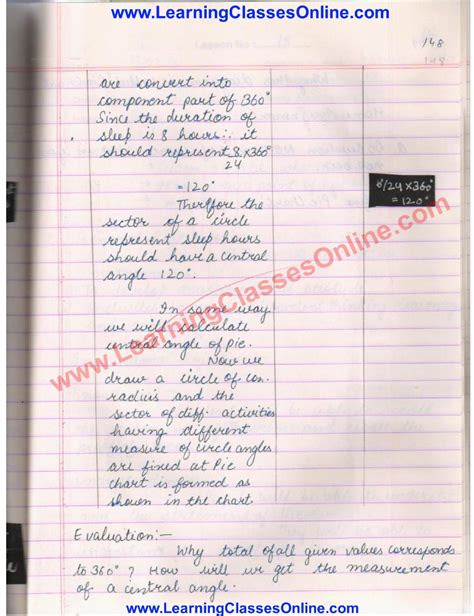 www.LearningClassesOnline.com
148
are convert into
component part of 360°
Since the duration of
sleep is 8 hours ∴ it
should represent 8/24 x360°
8/24 X360°
= 120°
= 120°
Therffore the
sector of a circle
represent sleep hours
should have a central
angle 120°.
In same way
we will calculate
central angle of Pie.
Now we
draw a circle of con.
radius and the
sector of diff. activities
having different
measure of circle angles
are fined at Pie
chart is formed as
shown in the chart
www.LearningClassesOnline.com
Evaluation:-
Why total of all given values corresponds
to 360°? How will we get the measurement
of a central angle.
www.LearningClassesOnline.com